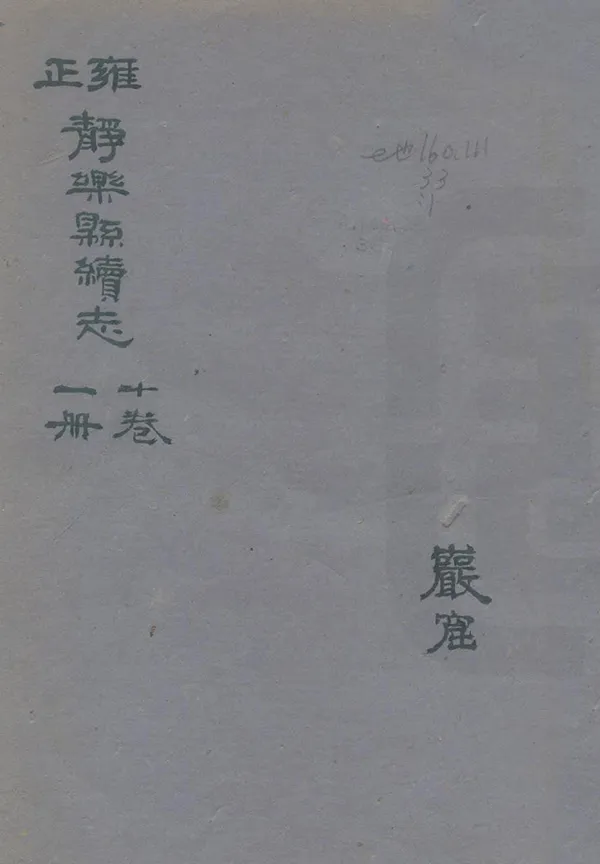 雍正
靜樂縣續志
十卷
一册
e地160.111
33
:1
巖窟